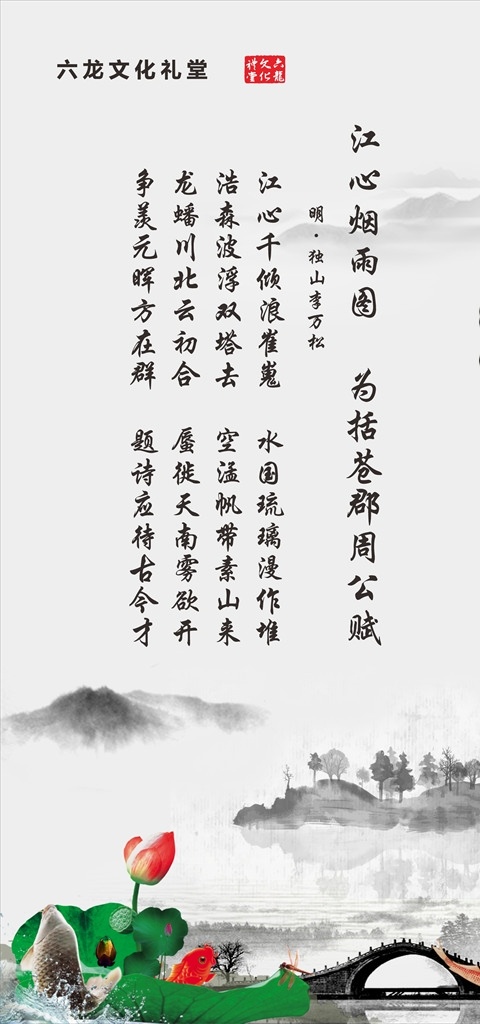 六龙文化礼堂
六龍文化祥堂
江心烟雨图 为括苍郡周公赋
明·独山李万松
江心千倾浪崔嵬 水国琉璃漫作堆
浩森波浮双塔去 空濛帆带素山来
龙蟠川北云初合 蜃徙天南雾欲开
争羡元晖方在群 题诗应待古今才